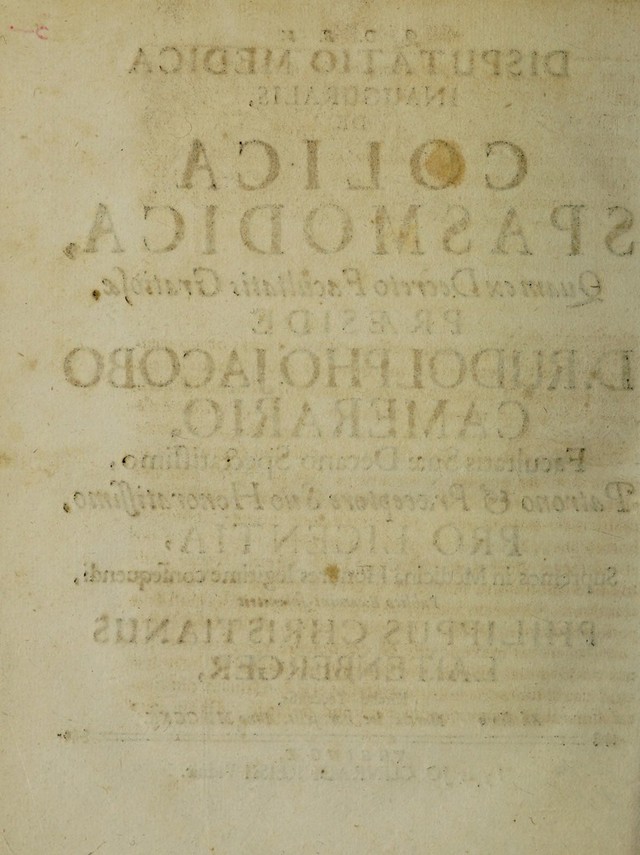 DISPUTATIO MEDICA
INAUGURALIS,
DE
COLICA
SPASMODICA,
Quam ex Decreto Facultatis Gratiosæ,
PRÆSIDE
D. RUDOLPHO JACOBO
CAMERARIO,
Facultatis Suæ Decano Spectatissimo,
Patrono & Præceptore Suo Honoratissimo,
PRO LICENTIA,
Supremos in Medicina Honores legitime consequendi,
PHILIPPUS CHRISTIANUS
LAITENBERGER,